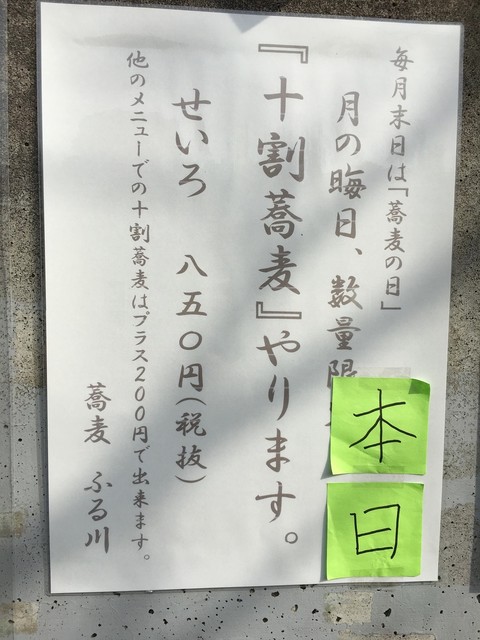 毎月末日は「蕎麦の日」
月の晦日、数量限
本
日
『十割蕎麦』やります。
せいろ 八五〇円(税抜)
他のメニューでの十割蕎麦はプラス200円で出来ます。
蕎麦 ふる川